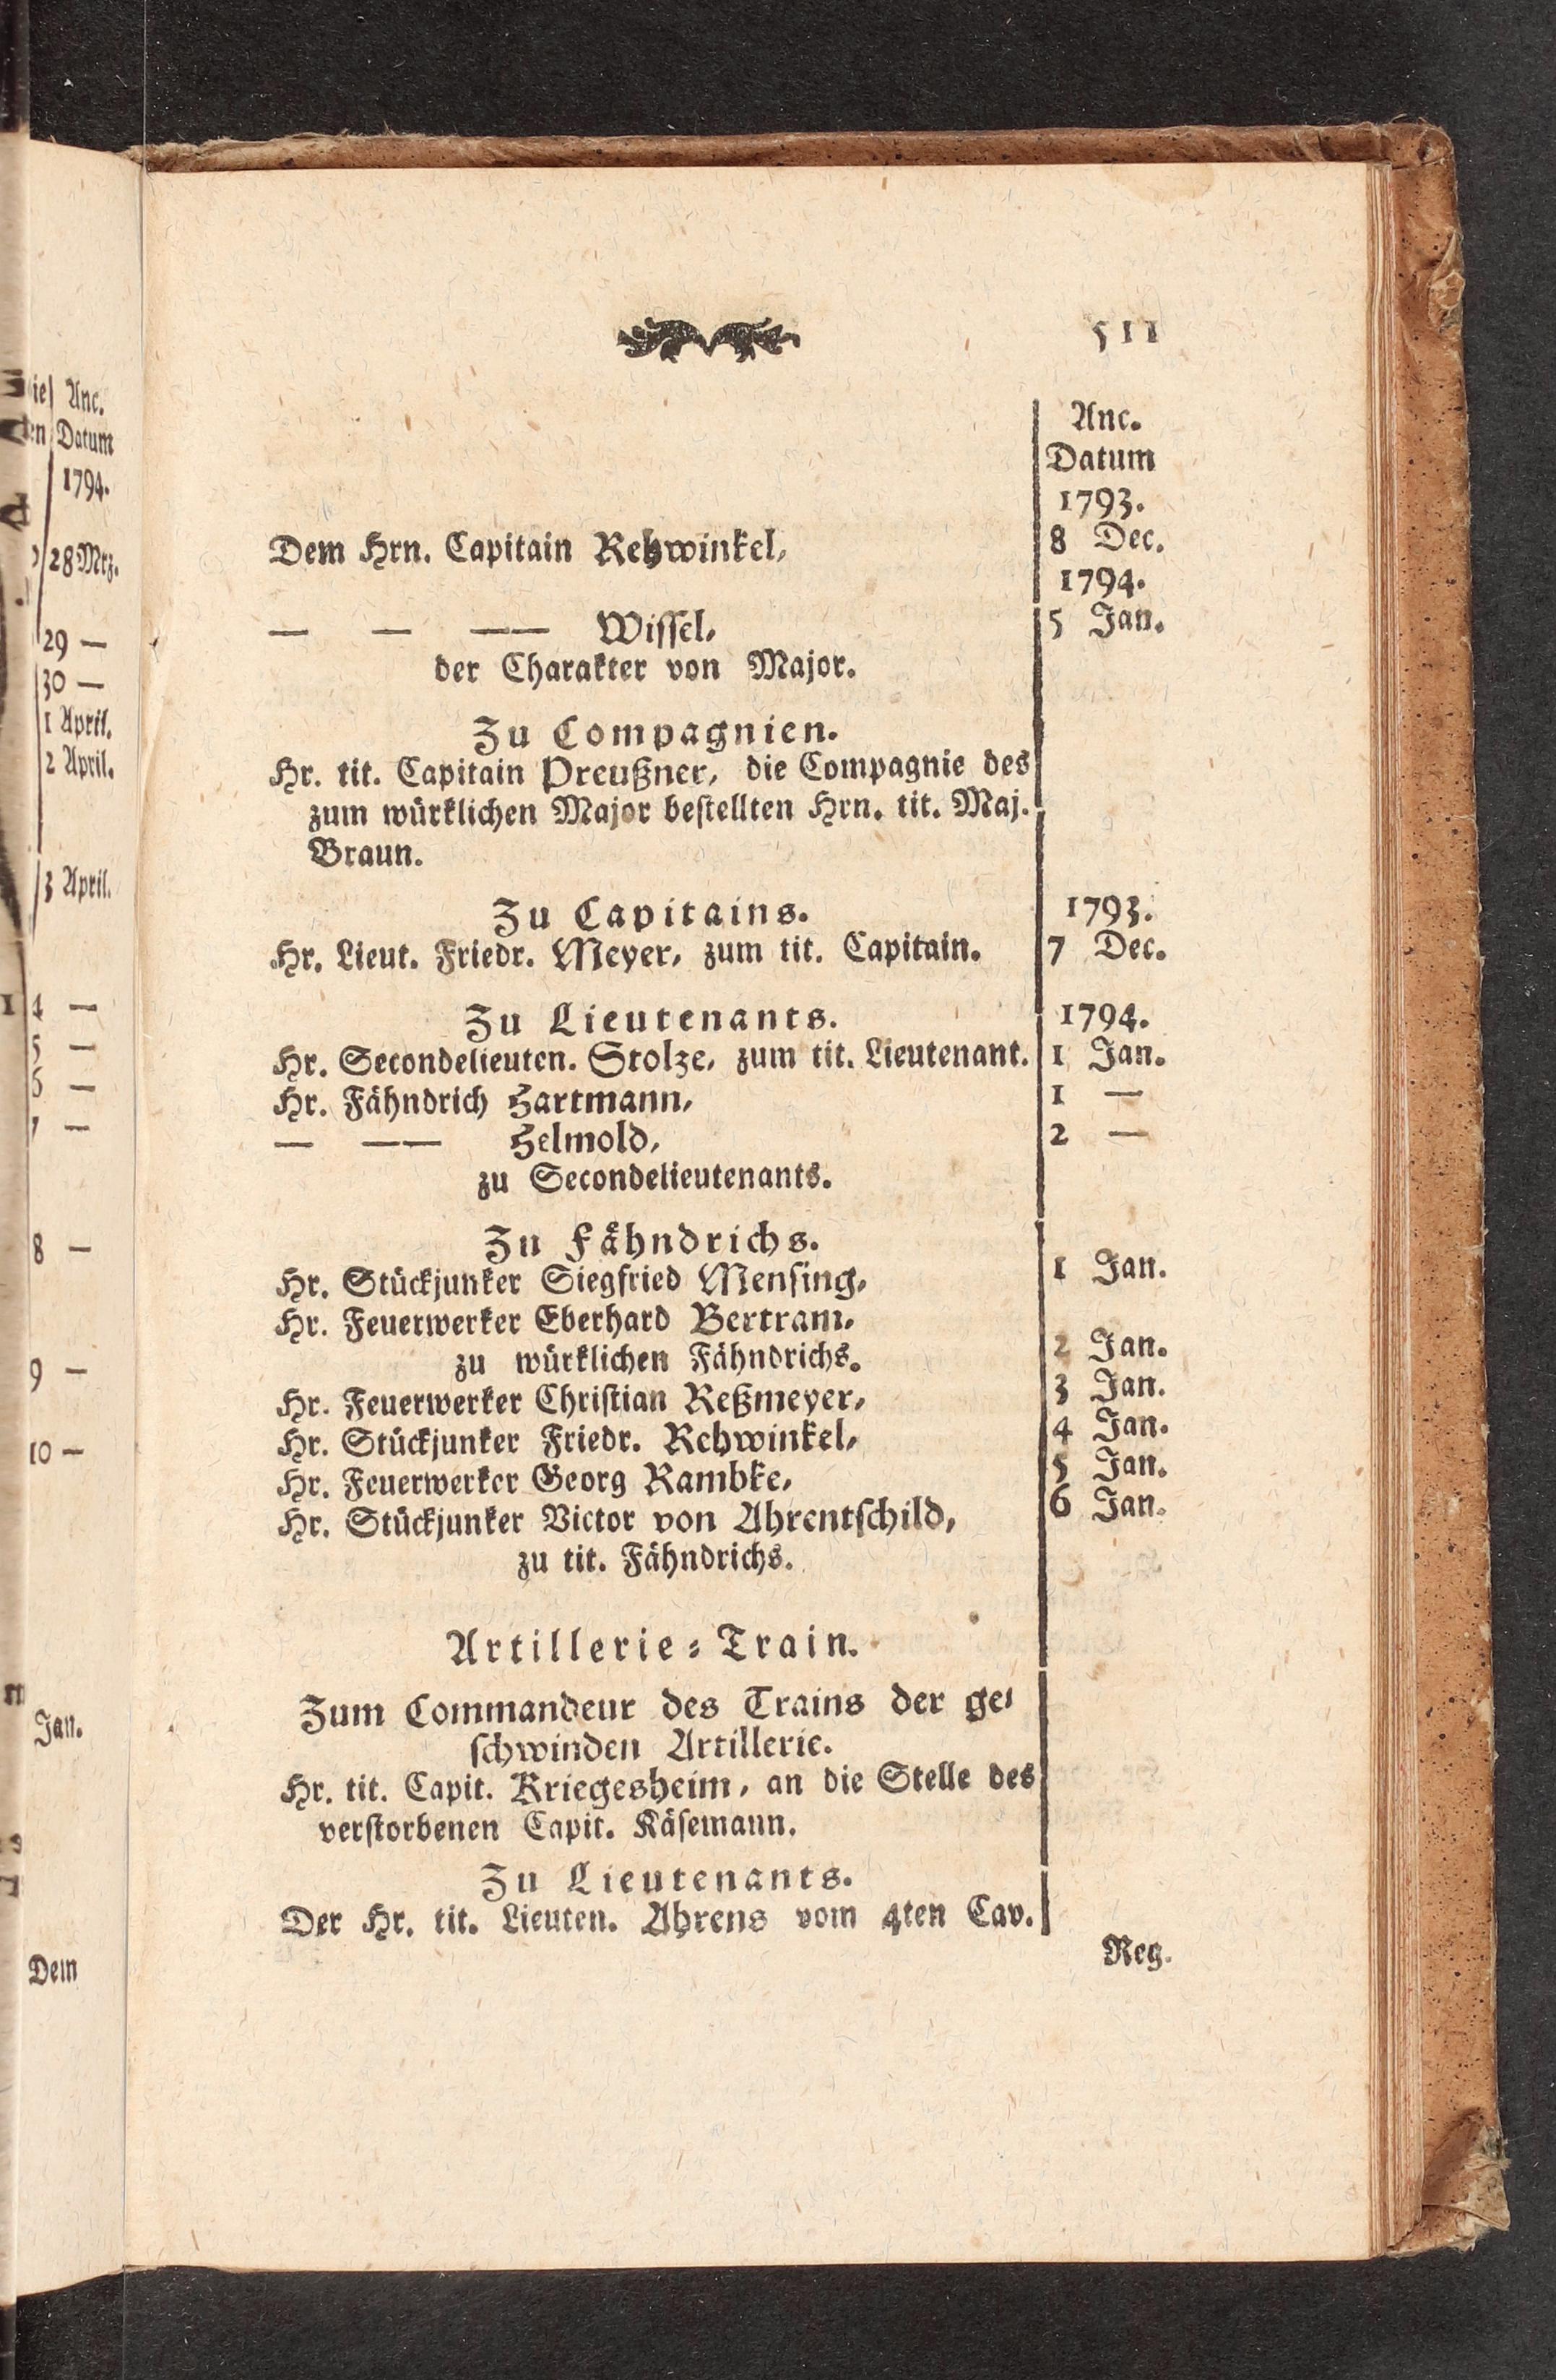 511
Anc.
Datum
1793.
Dem Hrn. Capitain Rehwinkel, 8 Dec.
1794.
— — —— Wissel, 5 Jan.
der Charakter von Major.
Zu Compagnien.
Hr. tit. Capitain Preußner, die Compagnie des
zum würklichen Major bestellten Hrn. tit. Maj.
Braun.
Zu Capitains. 1793.
Hr. Lieut. Friedr. Meyer, zum tit. Capitain. 7 Dec.
Zu Lieutenants. 1794.
Hr. Secondelieuten. Stolze, zum tit. Lieutenant. 1 Jan.
Hr. Fähndrich Hartmann, 1 —
— —— Helmold, 2 —
zu Secondelieutenants.
Zu Fähndrichs.
Hr. Stückjunker Siegfried Mensing, 1 Jan.
Hr. Feuerwerker Eberhard Bertram, 2 Jan.
zu würklichen Fähndrichs.
Hr. Feuerwerker Christian Reßmeyer, 3 Jan.
Hr. Stückjunker Friedr. Rehwinkel, 4 Jan.
Hr. Feuerwerker Georg Rambke, 5 Jan.
Hr. Stückjunker Victor von Ahrentschild, 6 Jan.
zu tit. Fähndrichs.
Artillerie-Train.
Zum Commandeur des Trains der ge-
schwinden Artillerie.
Hr. tit. Capit. Kriegesheim, an die Stelle des
verstorbenen Capit. Käsemann.
Zu Lieutenants.
Der Hr. tit. Lieuten. Ahrens vom 4ten Cav.
Reg.
Anc.
Datum
1794.
28 Mrz.
29 —
30 —
1 April.
2 April.
3 April.
4 —
5 —
6 —
7 —
8 —
9 —
10 —
Jan.
Dem